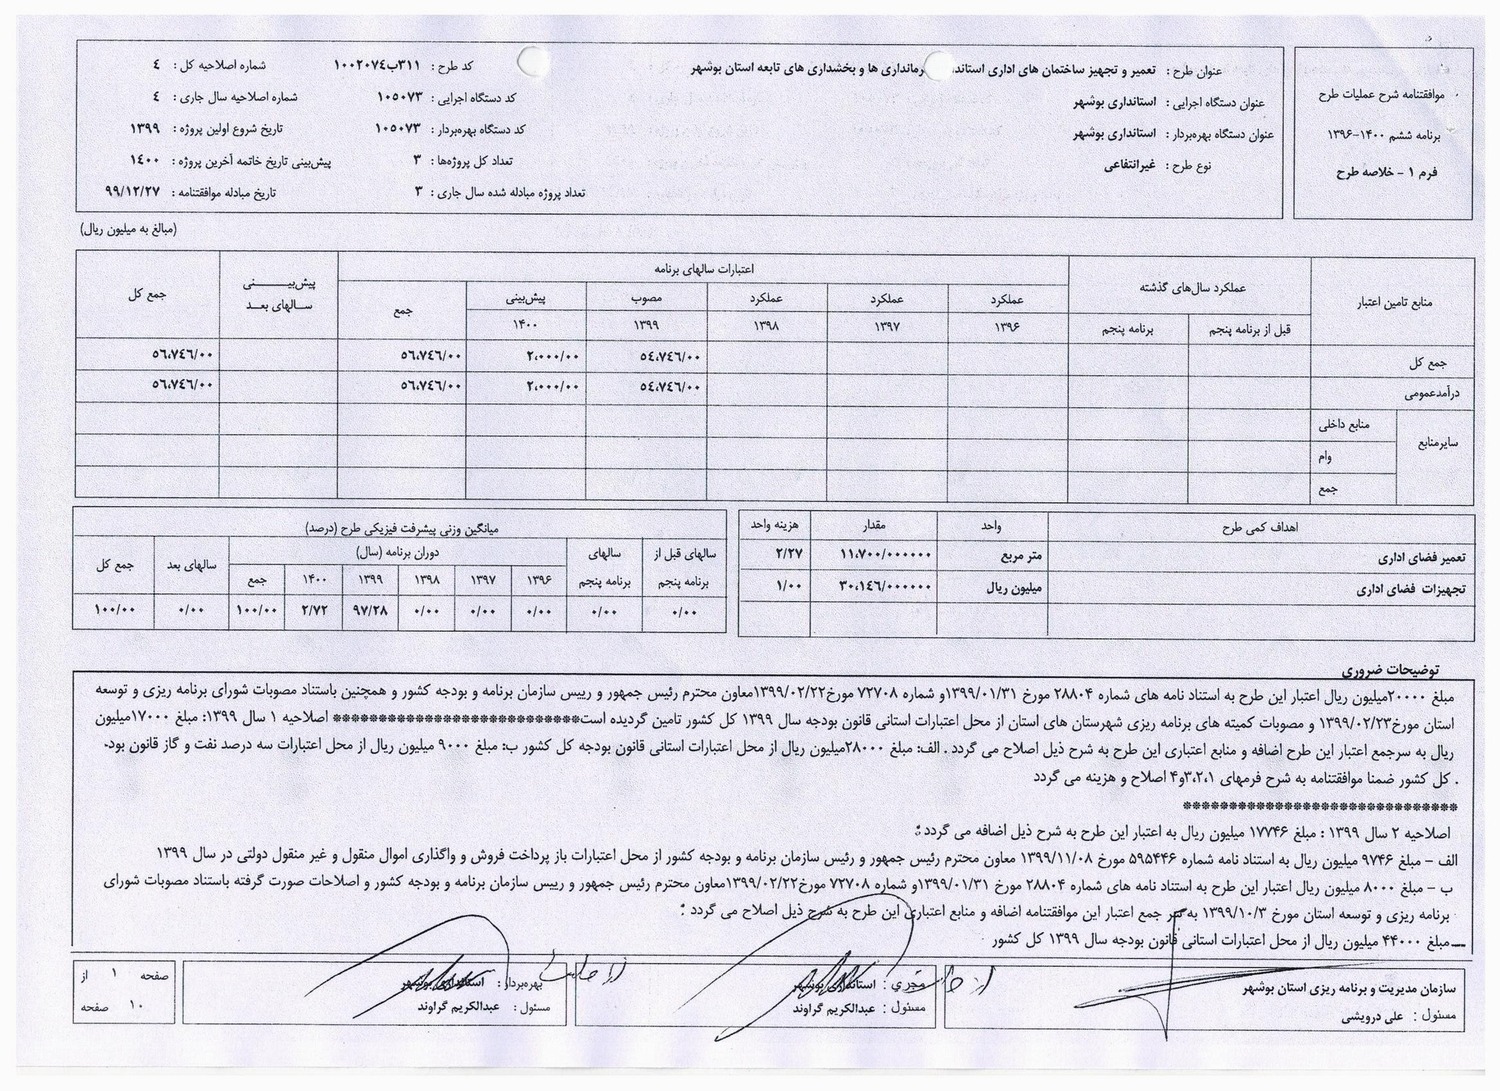 موافقتنامه شرح عملیات طرح
برنامه ششم ۱۴۰۰-۱۳۹۶
فرم ۱ - خلاصه طرح
عنوان طرح : تعمیر و تجهیز ساختمان های اداری فرمانداری ها و بخشداری های تابعه استان بوشهر
عنوان دستگاه اجرایی : استانداری بوشهر
عنوان دستگاه بهره‌بردار : استانداری بوشهر
نوع طرح : غیرانتفاعی
کد طرح : ۳۱۱ب۱۰۰۲۰۷۴
کد دستگاه اجرایی : ۱۰۵۰۷۳
کد دستگاه بهره‌بردار : ۱۰۵۰۷۳
تعداد کل پروژه‌ها : ۳
تعداد پروژه مبادله شده سال جاری : ۳
شماره اصلاحیه کل : ۴
شماره اصلاحیه سال جاری : ۴
تاریخ شروع اولین پروژه : ۱۳۹۹
پیش‌بینی تاریخ خاتمه آخرین پروژه : ۱۴۰۰
تاریخ مبادله موافقتنامه : ۹۹/۱۲/۲۷
(مبالغ به میلیون ریال)
منابع تامین اعتبار عملکرد سال‌های گذشته اعتبارات سالهای برنامه پیش‌بینی سالهای بعد جمع کل
قبل از برنامه پنجم برنامه پنجم عملکرد ۱۳۹۶ عملکرد ۱۳۹۷ عملکرد ۱۳۹۸ مصوب ۱۳۹۹ پیش‌بینی ۱۴۰۰ جمع
جمع کل ۵۴،۷۴۶/۰۰ ۲،۰۰۰/۰۰ ۵۶،۷۴۶/۰۰ ۵۶،۷۴۶/۰۰
درآمدعمومی ۵۴،۷۴۶/۰۰ ۲،۰۰۰/۰۰ ۵۶،۷۴۶/۰۰ ۵۶،۷۴۶/۰۰
سایرمنابع
منابع داخلی
وام
جمع
اهداف کمی طرح واحد مقدار هزینه واحد
تعمیر فضای اداری متر مربع ۱۱،۷۰۰/۰۰۰۰۰۰ ۲/۲۷
تجهیزات فضای اداری میلیون ریال ۳۰،۱۴۶/۰۰۰۰۰۰ ۱/۰۰
میانگین وزنی پیشرفت فیزیکی طرح (درصد)
سالهای قبل از برنامه پنجم سالهای برنامه پنجم دوران برنامه (سال) سالهای بعد جمع کل
۱۳۹۶ ۱۳۹۷ ۱۳۹۸ ۱۳۹۹ ۱۴۰۰ جمع
۰/۰۰ ۰/۰۰ ۰/۰۰ ۰/۰۰ ۰/۰۰ ۹۷/۲۸ ۲/۷۲ ۱۰۰/۰۰ ۰/۰۰ ۱۰۰/۰۰
توضیحات ضروری
مبلغ ۲۰۰۰۰میلیون ریال اعتبار این طرح به استناد نامه های شماره ۲۸۸۰۴ مورخ ۱۳۹۹/۰۱/۳۱و شماره ۷۲۷۰۸ مورخ۱۳۹۹/۰۲/۲۲معاون محترم رئیس جمهور و رییس سازمان برنامه و بودجه کشور و همچنین باستناد مصوبات شورای برنامه ریزی و توسعه
استان مورخ۱۳۹۹/۰۲/۲۳ و مصوبات کمیته های برنامه ریزی شهرستان های استان از محل اعتبارات استانی قانون بودجه سال ۱۳۹۹ کل کشور تامین گردیده است**************************** اصلاحیه ۱ سال ۱۳۹۹: مبلغ ۱۷۰۰۰میلیون
ریال به سرجمع اعتبار این طرح اضافه و منابع اعتباری این طرح به شرح ذیل اصلاح می گردد . الف: مبلغ ۲۸۰۰۰میلیون ریال از محل اعتبارات استانی قانون بودجه کل کشور ب: مبلغ ۹۰۰۰ میلیون ریال از محل اعتبارات سه درصد نفت و گاز قانون بود.
. کل کشور ضمنا موافقتنامه به شرح فرمهای ۳،۲،۱و۴ اصلاح و هزینه می گردد
******************************
اصلاحیه ۲ سال ۱۳۹۹ : مبلغ ۱۷۷۴۶ میلیون ریال به اعتبار این طرح به شرح ذیل اضافه می گردد :
الف - مبلغ ۹۷۴۶ میلیون ریال به استناد نامه شماره ۵۹۵۴۴۶ مورخ ۱۳۹۹/۱۱/۰۸ معاون محترم رئیس جمهور و رئیس سازمان برنامه و بودجه کشور از محل اعتبارات باز پرداخت فروش و واگذاری اموال منقول و غیر منقول دولتی در سال ۱۳۹۹
ب - مبلغ ۸۰۰۰ میلیون ریال اعتبار این طرح به استناد نامه های شماره ۲۸۸۰۴ مورخ ۱۳۹۹/۰۱/۳۱و شماره ۷۲۷۰۸ مورخ۱۳۹۹/۰۲/۲۲معاون محترم رئیس جمهور و رییس سازمان برنامه و بودجه کشور و اصلاحات صورت گرفته باستناد مصوبات شورای
برنامه ریزی و توسعه استان مورخ ۱۳۹۹/۱۰/۳ به سر جمع اعتبار این موافقتنامه اضافه و منابع اعتباری این طرح به شرح ذیل اصلاح می گردد :
مبلغ ۴۴۰۰۰ میلیون ریال از محل اعتبارات استانی قانون بودجه سال ۱۳۹۹ کل کشور
سازمان مدیریت و برنامه ریزی استان بوشهر
مسئول : علی درویشی
مجری : استانداری بوشهر
مسئول : عبدالکریم گراوند
بهره‌بردار : استانداری بوشهر
مسئول : عبدالکریم گراوند
صفحه ۱ از
۱۰ صفحه